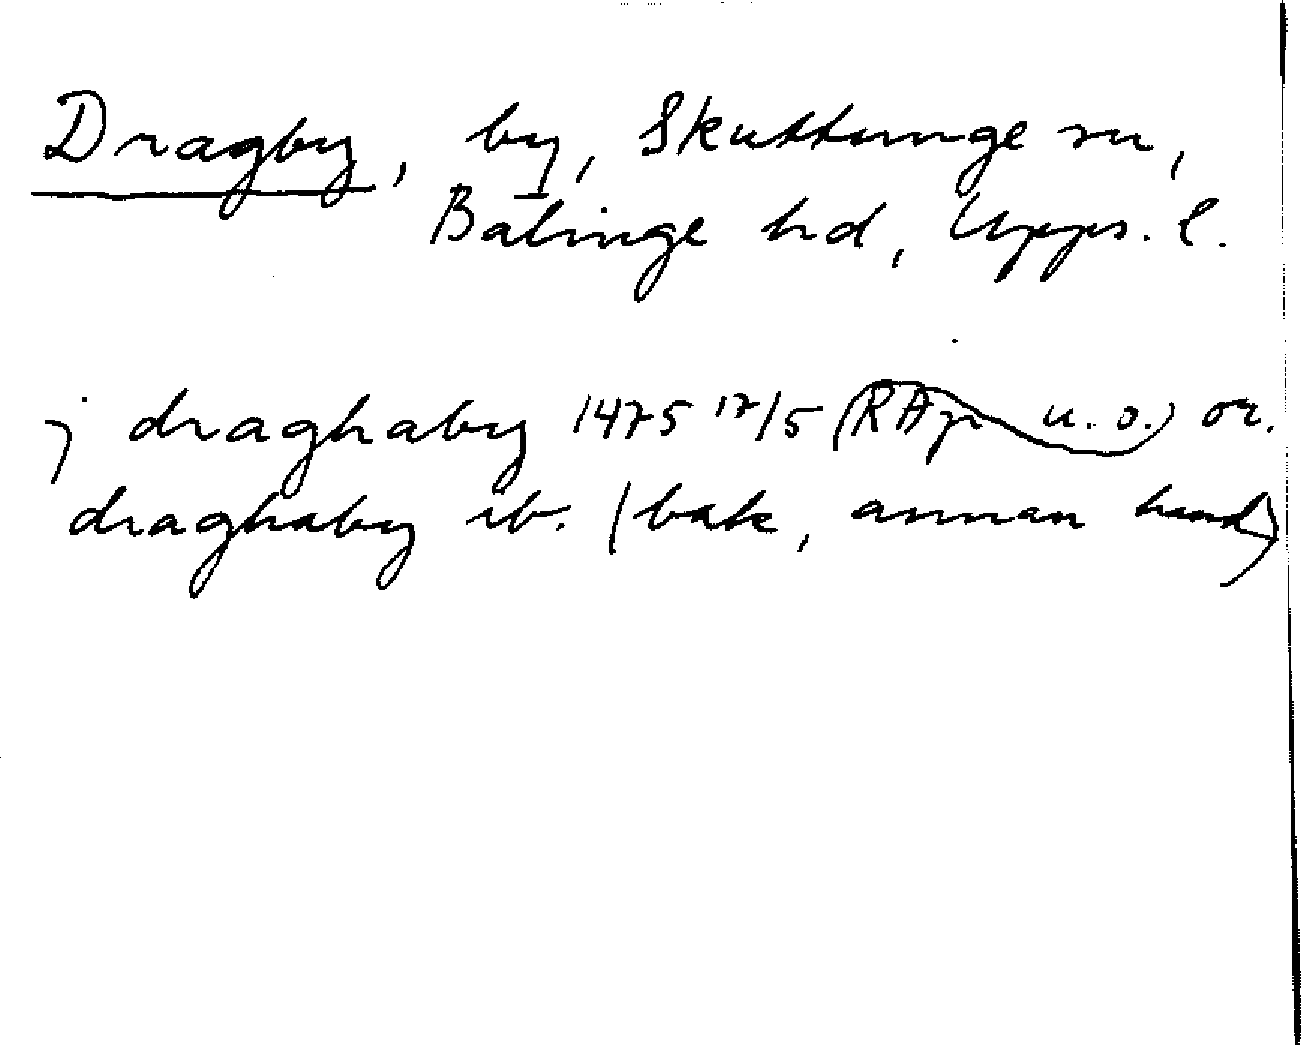 Dragby, by, Skuttunge sn,
Bälinge hd, Upps. l.
j draghaby 1475 17/5 (RAp u. o.) or.
draghaby ib. (bak, annan hand)